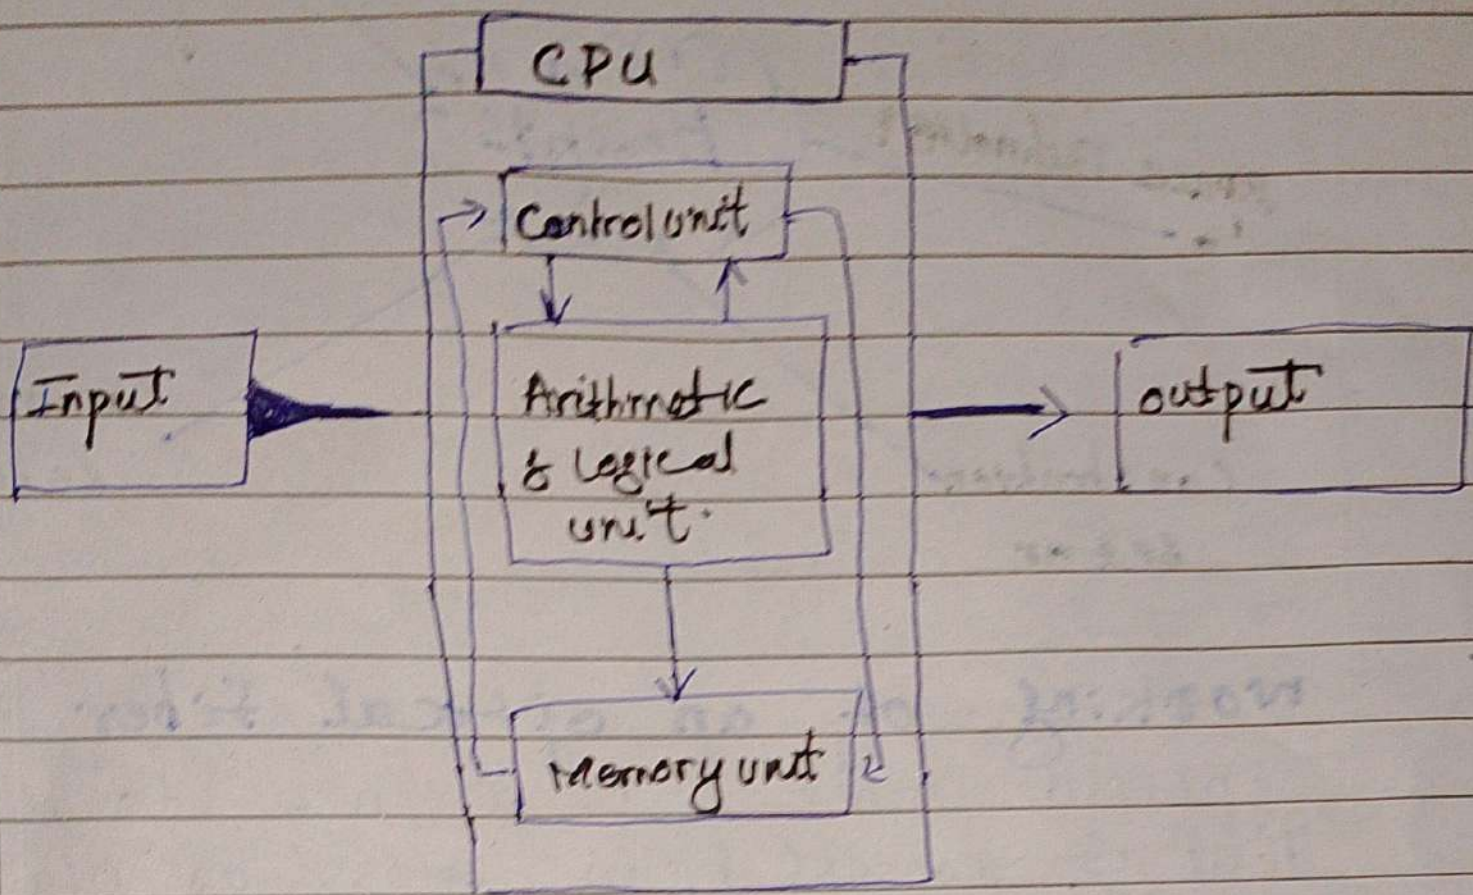 CPU
Control unit
Input
Arithmetic
& Logical
unit.
output
Memory unit